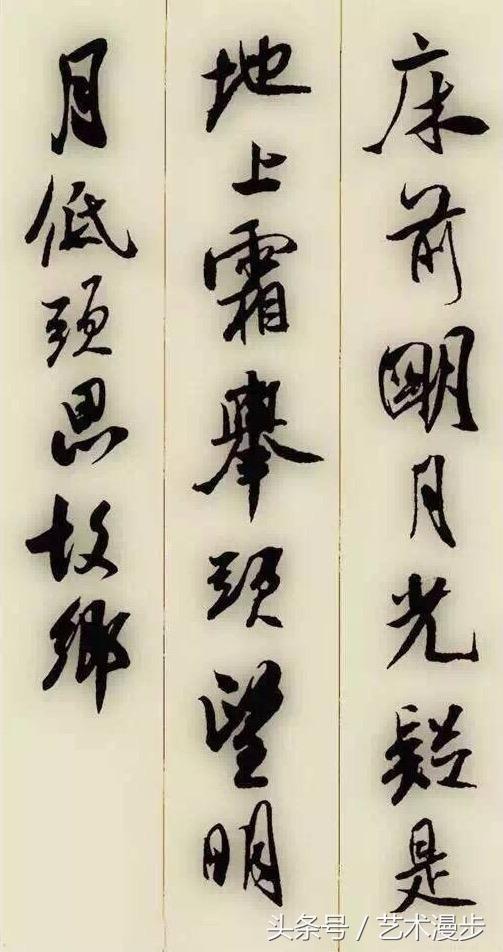 床前明月光疑是
地上霜舉頭望明
月低頭思故鄉
头条号 / 艺术漫步